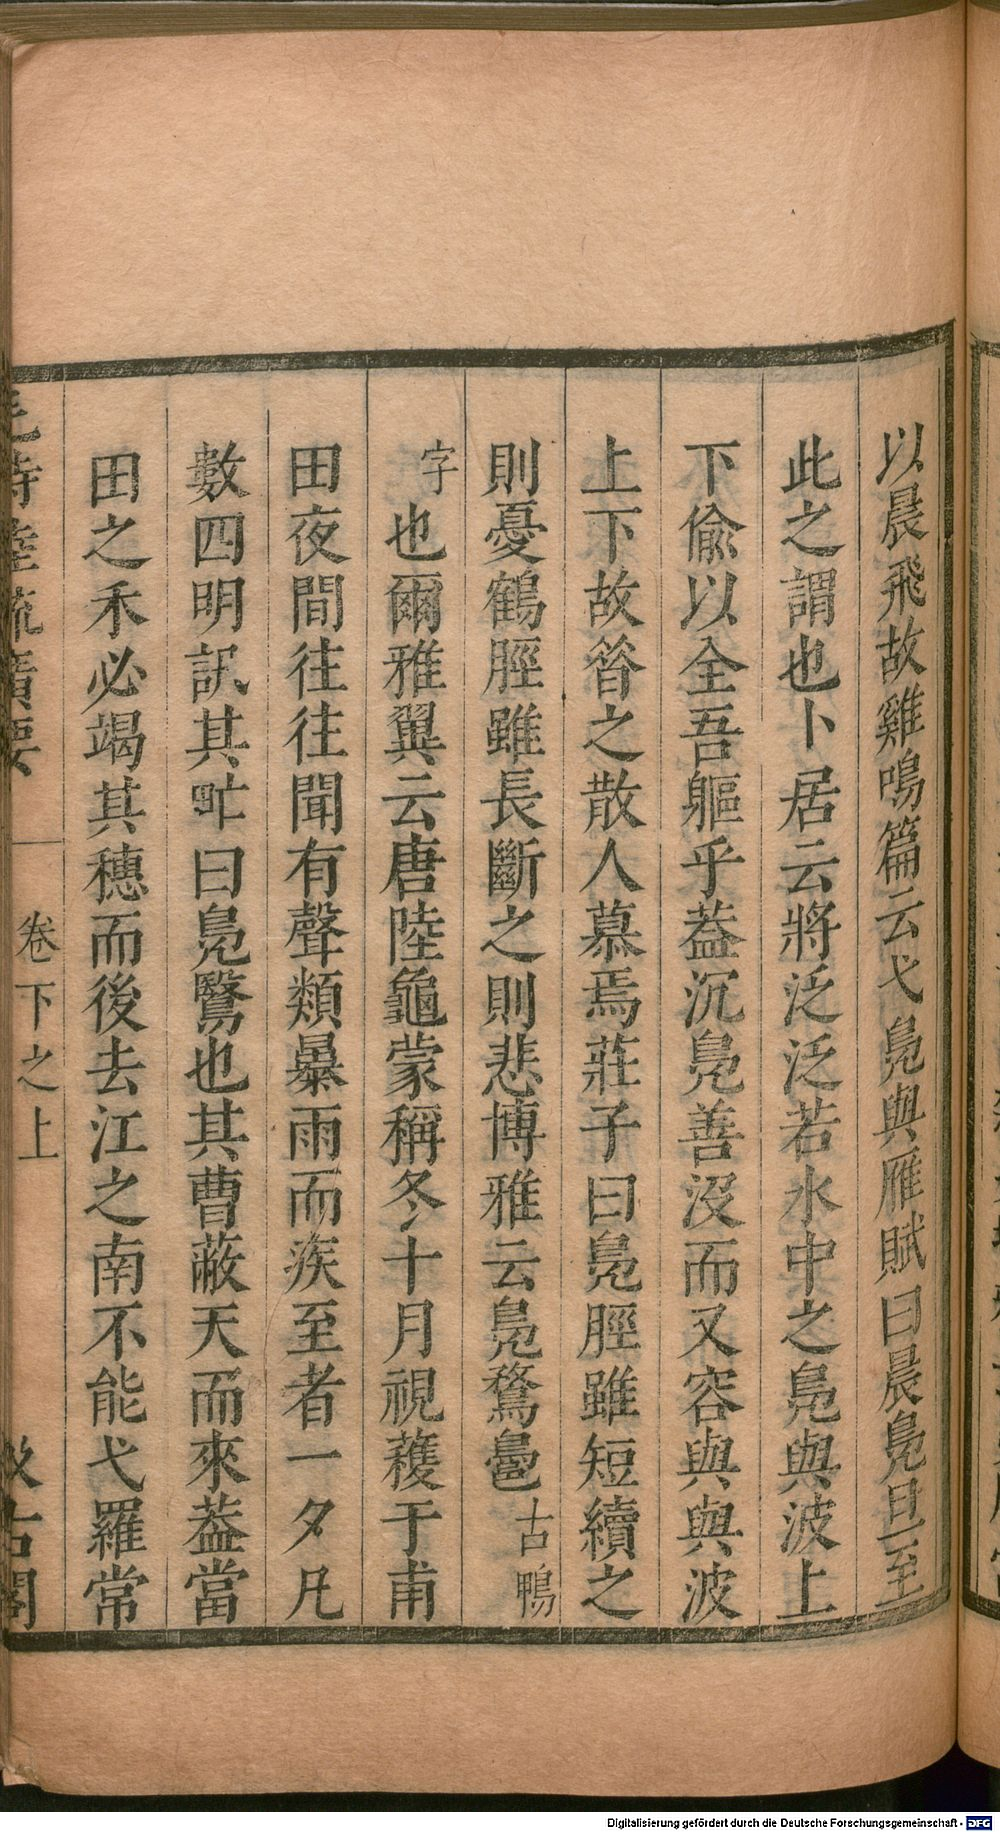 以晨飛故雞鳴篇云弋鳧與雁賦曰晨鳧旦至
此之謂也卜居云將泛泛若水中之鳧與波上
下偷以全吾軀乎葢沉鳧善沒而又容與與波
上下故昝之散人慕焉莊子曰鳧脛雖短續之
則憂鶴脛雖長斷之則悲博雅云鳧鶩䳝古鴨
字也爾雅翼云唐陸龜蒙稱冬十月視穫于甫
田夜間往往聞有聲類暴雨而疾至者一夕凡
數四明訊其甿曰鳧鷖也其曹蔽天而來葢當
田之禾必竭其穗而後去江之南不能弋羅常
毛詩陸疏廣要 卷下之上 汲古閣
Digitalisierung gefördert durch die Deutsche Forschungsgemeinschaft - DFG